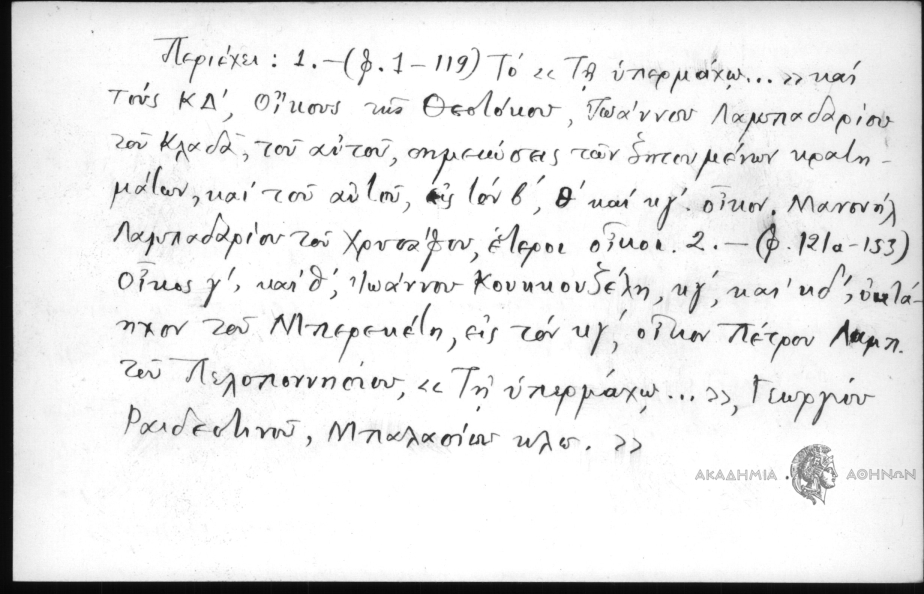 Περιέχει : 1. – (φ. 1 – 119) Τό « Τῇ ὑπερμάχῳ ... » καί
τούς ΚΔ΄, Οἴκους τῆς Θεοτόκου, Ἰωάννου Λαμπαδαρίου
τοῦ Κλαδᾶ, τοῦ αὐτοῦ, σημειώσεις τῶν ζητουμένων κρατη-
μάτων, καί τοῦ αὐτοῦ, εἰς τόν β΄, θ΄ καί κγ΄. οἶκον. Μανουήλ
Λαμπαδαρίου τοῦ Χρυσάφου, ἕτεροι οἶκοι. 2. – (φ. 121α – 153)
Οἶκος γ΄, καί θ΄, Ἰωάννου Κουκκουζέλη, κγ΄, καί κδ΄, ὀκτά
ηχον τοῦ Μπερεκέτη, εἰς τόν κγ΄, οἶκον Πέτρου Λαμπ.
τοῦ Πελοποννησίου, « Τῇ ὑπερμάχῳ ... », Γεωργίου
Ραιδεστηνοῦ, Μπαλασίου κλπ. »
ΑΚΑΔΗΜΙΑ ΑΘΗΝΩΝ